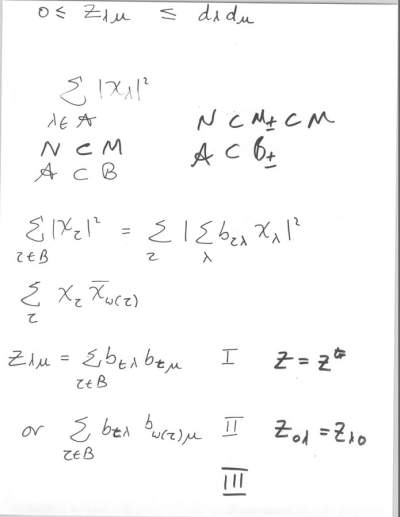 0 ≤ Z_{λμ} ≤ d_λ d_μ
∑_{λ∈A} |χ_λ|²
N ⊂ M    N ⊂ M_± ⊂ M
A ⊂ B    A ⊂ B_±
∑_{τ∈B} |χ_τ|² = ∑_τ |∑_λ b_{τλ} χ_λ|²
∑_τ χ_τ χ̄_{ω(τ)}
Z_{λμ} = ∑_{τ∈B} b_{τλ} b_{τμ}    I    Z = Z^t
or ∑_{τ∈B} b_{τλ} b_{ω(τ)μ}    II    Z_{0λ} = Z_{λ0}
III